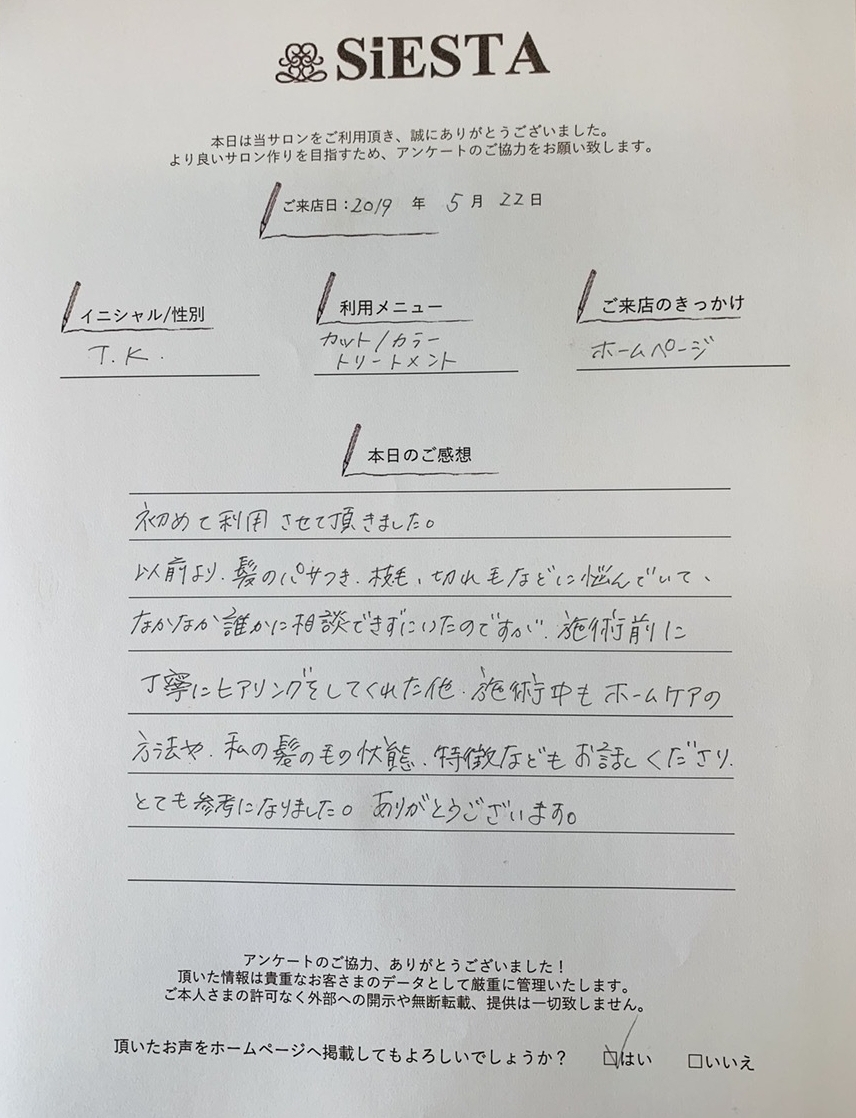 SiESTA
本日は当サロンをご利用頂き、誠にありがとうございました。
より良いサロン作りを目指すため、アンケートのご協力をお願い致します。
ご来店日：2019 年 5 月 22 日
イニシャル/性別
T. K.
利用メニュー
カット/カラー
トリートメント
ご来店のきっかけ
ホームページ
本日のご感想
初めて利用させて頂きました。
以前より、髪のパサつき、枝毛、切れ毛などに悩んでいて、
なかなか誰かに相談できずにいたのですが、施術前に
丁寧にヒアリングをしてくれた他、施術中もホームケアの
方法や、私の髪の毛の状態、特徴などもお話しくださり、
とても参考になりました。ありがとうございます。
アンケートのご協力、ありがとうございました！
頂いた情報は貴重なお客さまのデータとして厳重に管理いたします。
ご本人さまの許可なく外部への開示や無断転載、提供は一切致しません。
頂いたお声をホームページへ掲載してもよろしいでしょうか？ ☑はい □いいえ